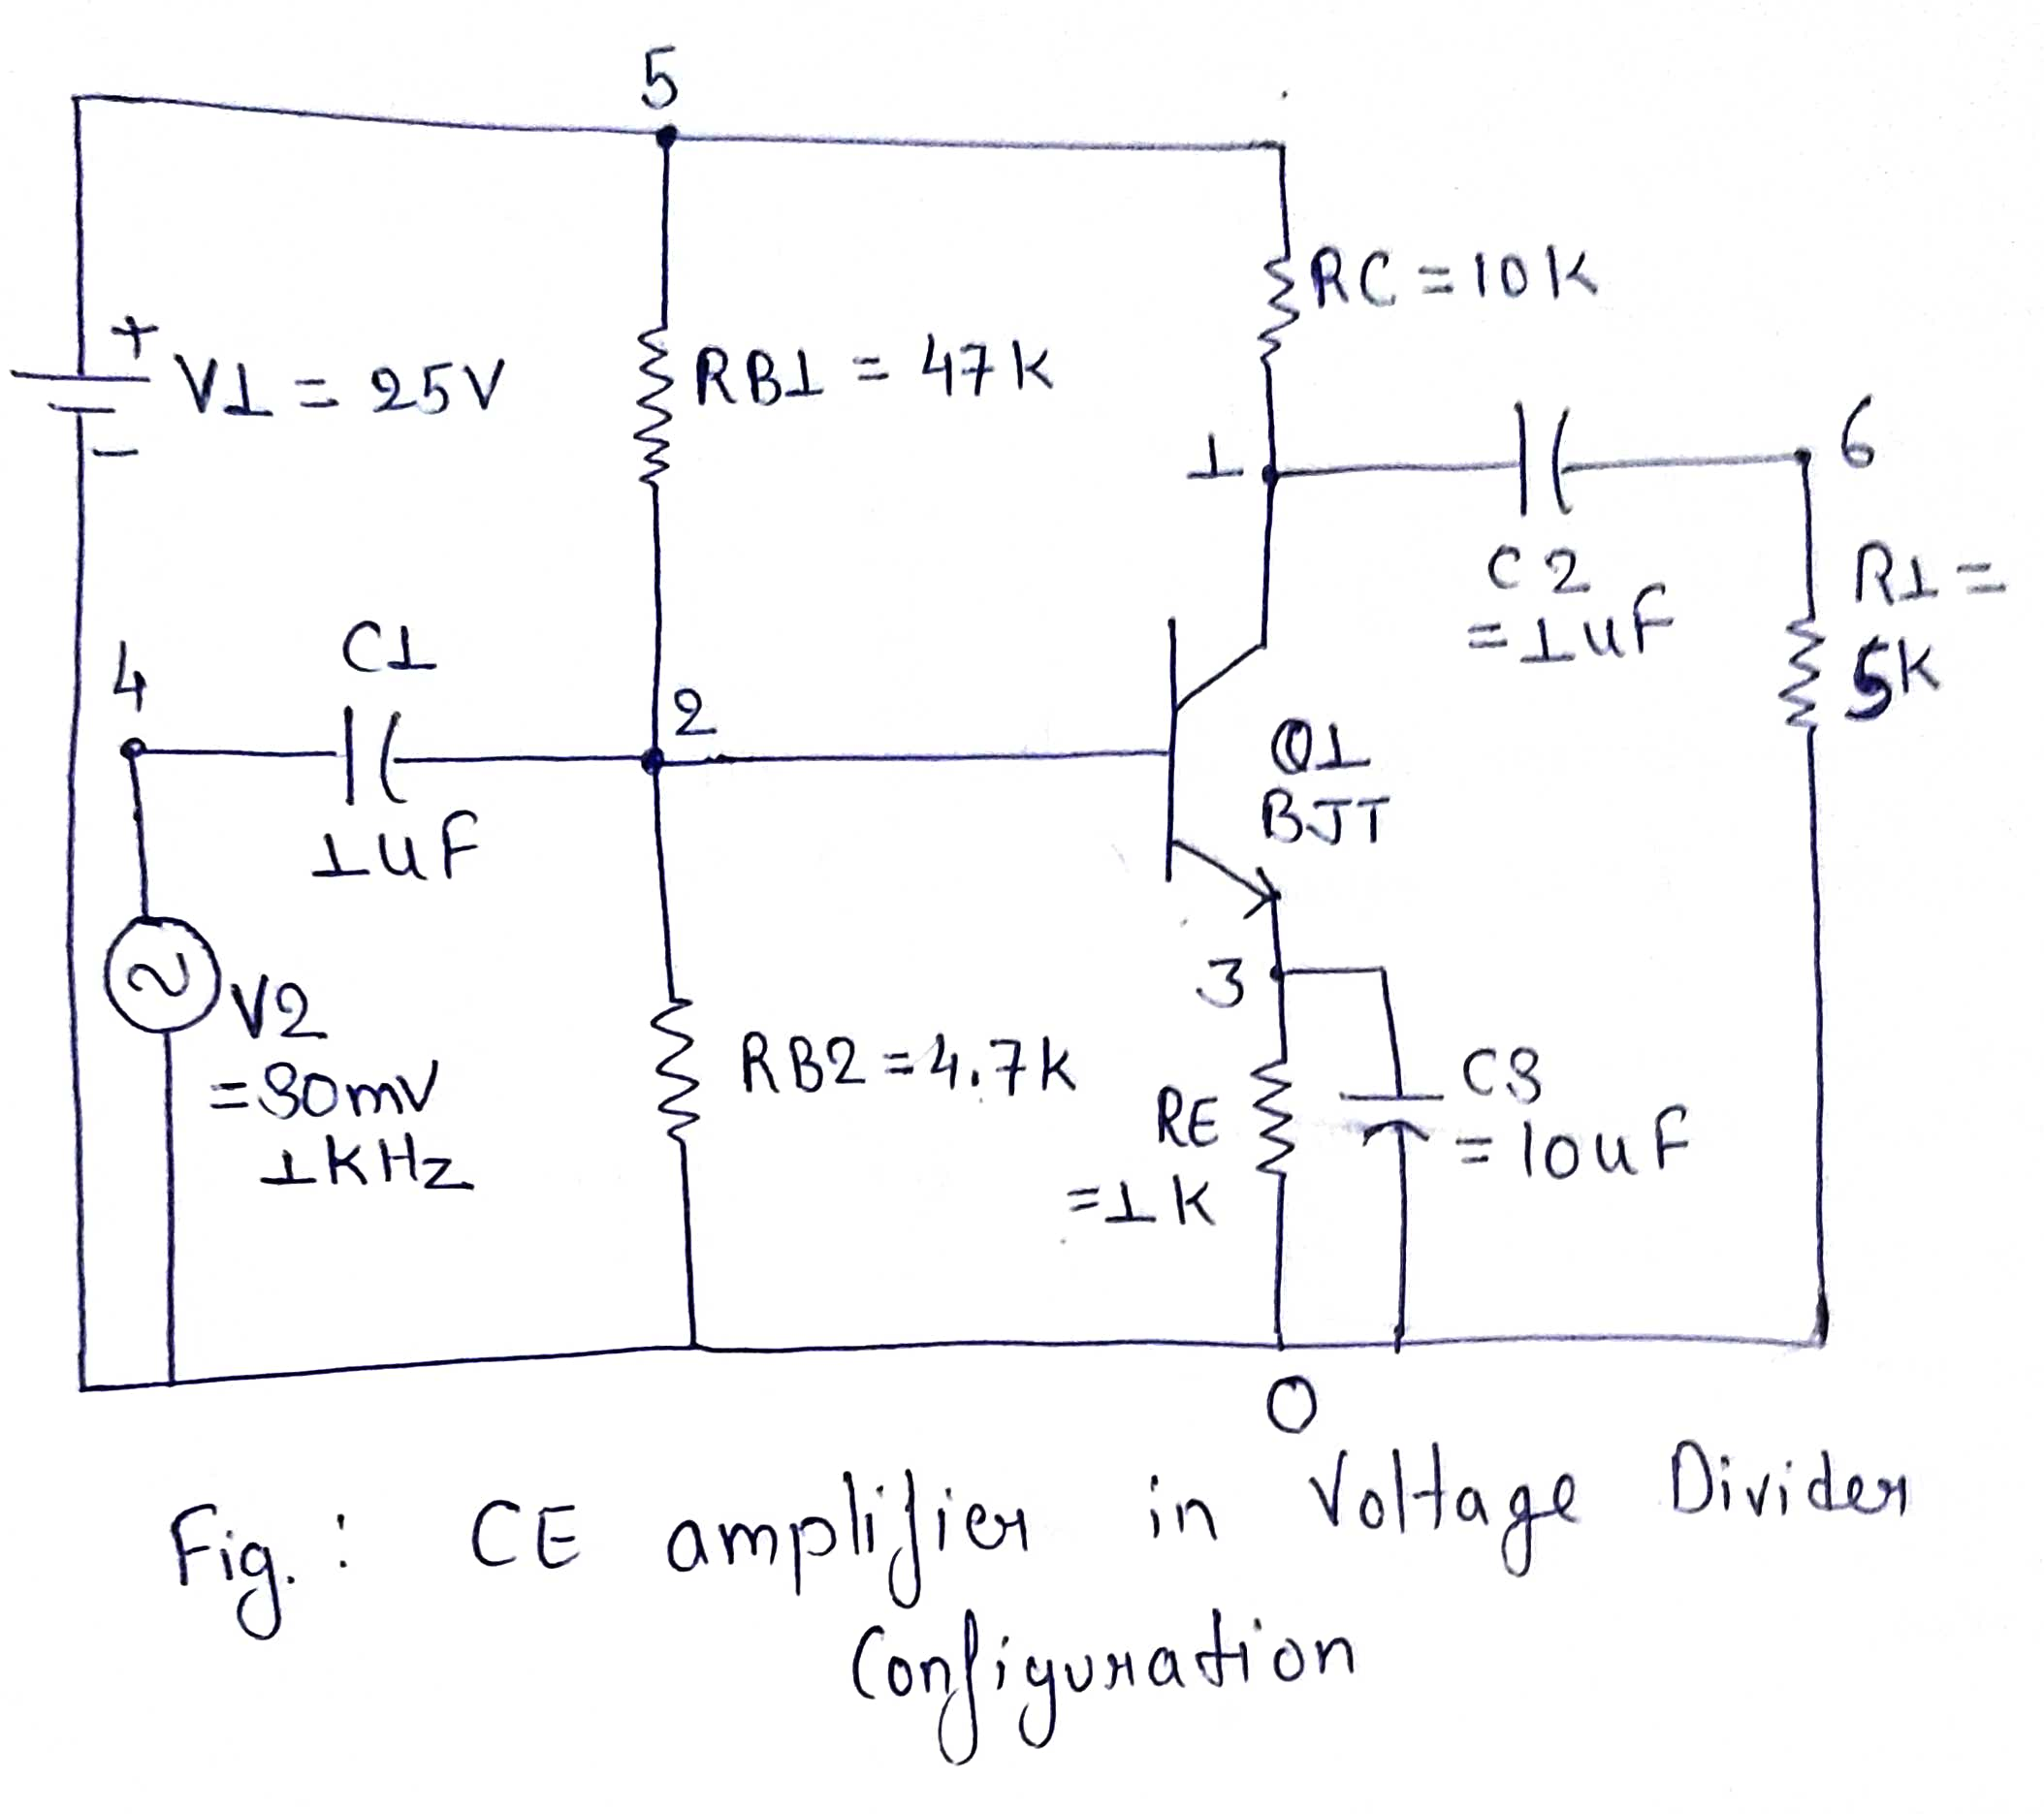 5
+
V1 = 25V
-
RB1 = 47k
RC = 10K
1
6
C2
= 1uF
R1 =
5K
4
C1
1uF
2
Q1
BJT
3
V2
= 30mV
1KHz
RB2 = 4.7k
RE
= 1K
C3
= 10uF
0
Fig. : CE amplifier in Voltage Divider
Configuration